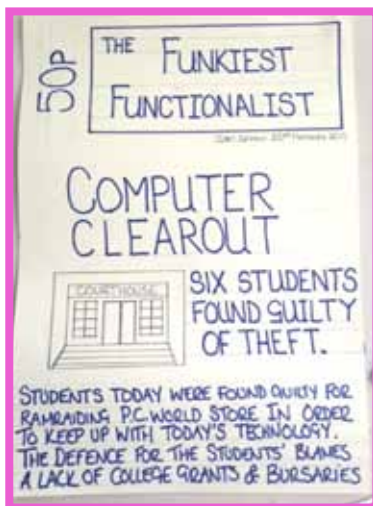 50P
THE FUNKIEST
FUNCTIONALIST
COMPUTER
CLEAROUT
COURTHOUSE
SIX STUDENTS
FOUND GUILTY
OF THEFT.
STUDENTS TODAY WERE FOUND GUILTY FOR
RAMRAIDING P.C. WORLD STORE IN ORDER
TO KEEP UP WITH TODAY'S TECHNOLOGY.
THE DEFENCE FOR THE STUDENTS' BLAMES
A LACK OF COLLEGE GRANTS & BURSARIES